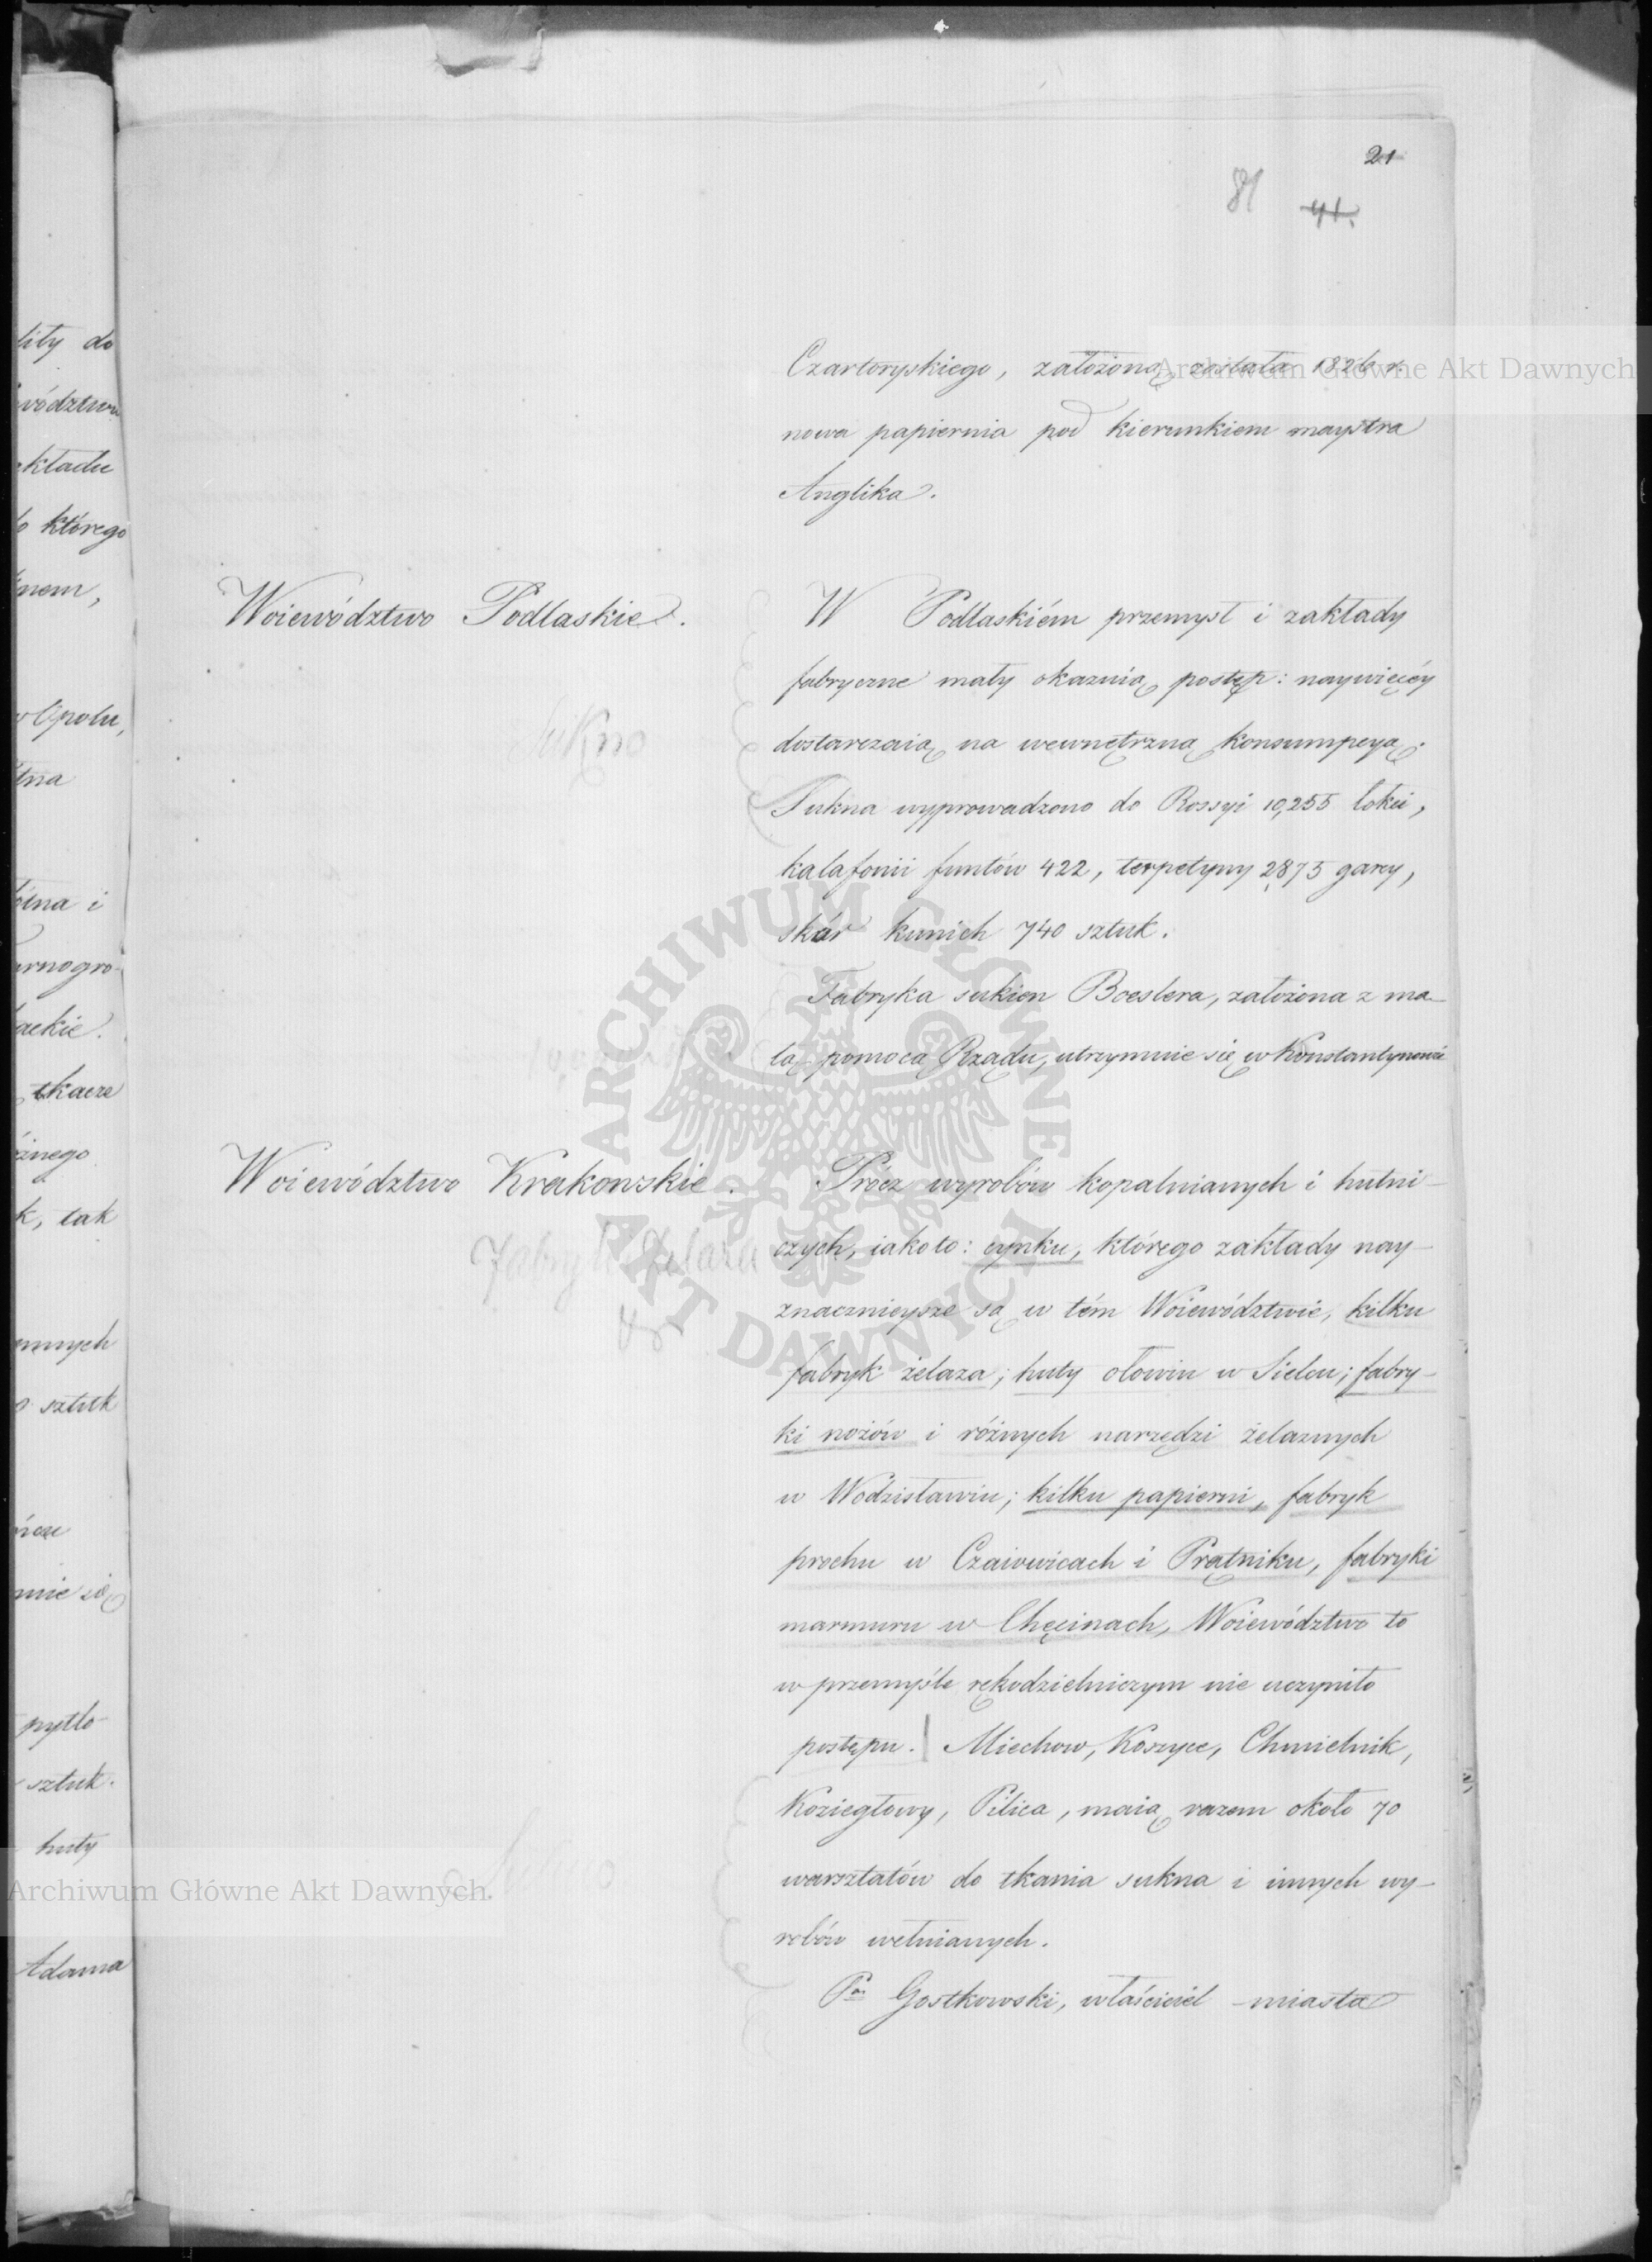 21
81 41.
lity do
wództwu
kładu
o którego
nem,
w Opolu,
tna
ótna i
arnogro-
ackie.
tkacze
óżnego
k, tak
nnych
o sztuk
nie się
pytlo-
sztuk.
huty
Adama
Czartoryskiego, założoną została 1826 r.
nowa papiernia pod kierunkiem maystra
Anglika.
Woiewództwo Podlaskie.
W Podlaskiém przemysł i zakłady
fabryczne mały okazuią postęp: naywięcéy
dostarczaią na wewnętrzną konsumpcyą.
Sukno
Sukna wyprowadzono do Rossyi 10,255 łokci,
kalafonii funtów 422, terpetyny 2,875 garcy,
skór kunich 740 sztuk.
Fabryka sukien Boeslera, założona z ma-
łą pomocą Rządu, utrzymuie się w Konstantynowie
Woiewództwo Krakowskie.
Prócz wyrobów kopalnianych i hutni-
czych, iakoto: cynku, którego zakłady nay-
Fabryk żelaza
znacznieysze są w tém Woiewództwie, kilku
fabryk żelaza; huty ołowiu w Sielcu; fabry-
ki nożów i różnych narzędzi żelaznych
w Wodzisławiu; kilku papierni, fabryk
prochu w Czaiowicach i Prątniku, fabryki
marmuru w Chęcinach, Woiewództwo to
w przemyśle rękodzielniczym nie uczyniło
postępu. Miechow, Koszyce, Chmielnik,
Koziegłowy, Pilica, maią razem około 70
warsztatów do tkania sukna i innych wy-
Sukno
robów wełnianych.
Pan Gostkowski, właściciel miasta
Archiwum Główne Akt Dawnych
ARCHIWUM GŁÓWNE AKT DAWNYCH
Archiwum Główne Akt Dawnych